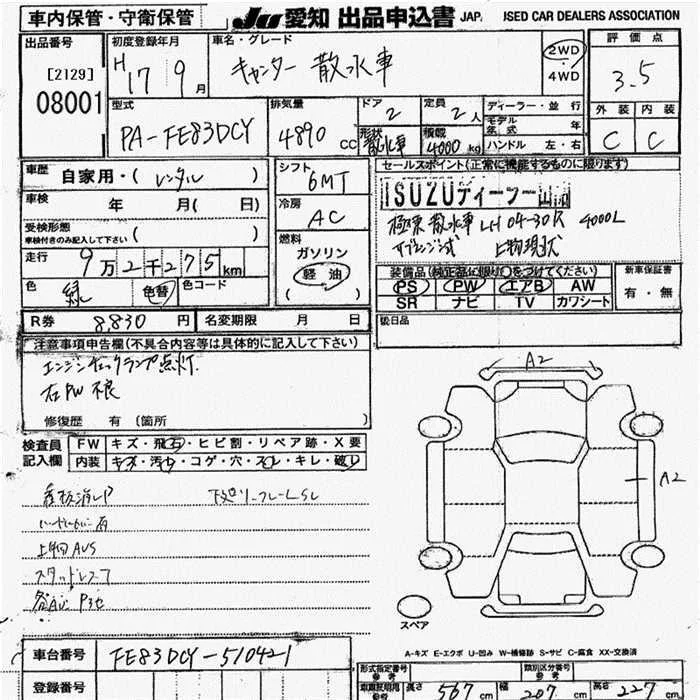 車内保管・守衛保管 JU 愛知 出品申込書 JAP. ISED CAR DEALERS ASSOCIATION
出品番号 初度登録年月 車名・グレード 評価点
[2129] H17 9月 キャンター 散水車 2WD・4WD 3.5
08001
型式 排気量 ドア 定員 ディーラー・並行 外装 内装
PA-FE83DCY 4890 CC 2 2人 モデル年式 年 C C
形状 散水車 積載 4000 kg ハンドル 左・右
車歴 自家用・( レンタル ) シフト 6MT セールスポイント(正常に機能するものに限ります)
車検 年 月( 日) 冷房 AC ISUZUディーゾー
受検形態 車検付きのみ記入して下さい ( ) 極東散水車 LH04-30R 4000L
燃料 ガソリン 軽油 ( ) 上物現状
走行 9万2千275km
装備品(純正品に限り○をつけてください) 新車保証書
色 緑 色替 色コード PS PW エアB AW 有・無
SR ナビ TV カワシート
R券 8,830円 名変期限 月 日 後日品
注意事項申告欄(不具合内容等は具体的に記入して下さい)
エンジンチェックランプ点灯. A2
右PW不良
修復歴 有 (箇所
検査員記入欄 FW キズ・飛石・ヒビ割・リペア跡・X要
内装 キズ・汚れ・コゲ・穴・スレ・キレ・破れ A2
下廻り・フレームSSL
上物AUS
スタッドレス7
スペア
A-キズ E-エクボ U-凹み W-補修跡 S-サビ C-腐食 XX-交換済
車台番号 FE83DCY-510421 形式指定番号 参考 類別区分番号 参考
登録番号 車庫証明用 参考 長さ 567 cm 幅 207 cm 高さ 227 cm